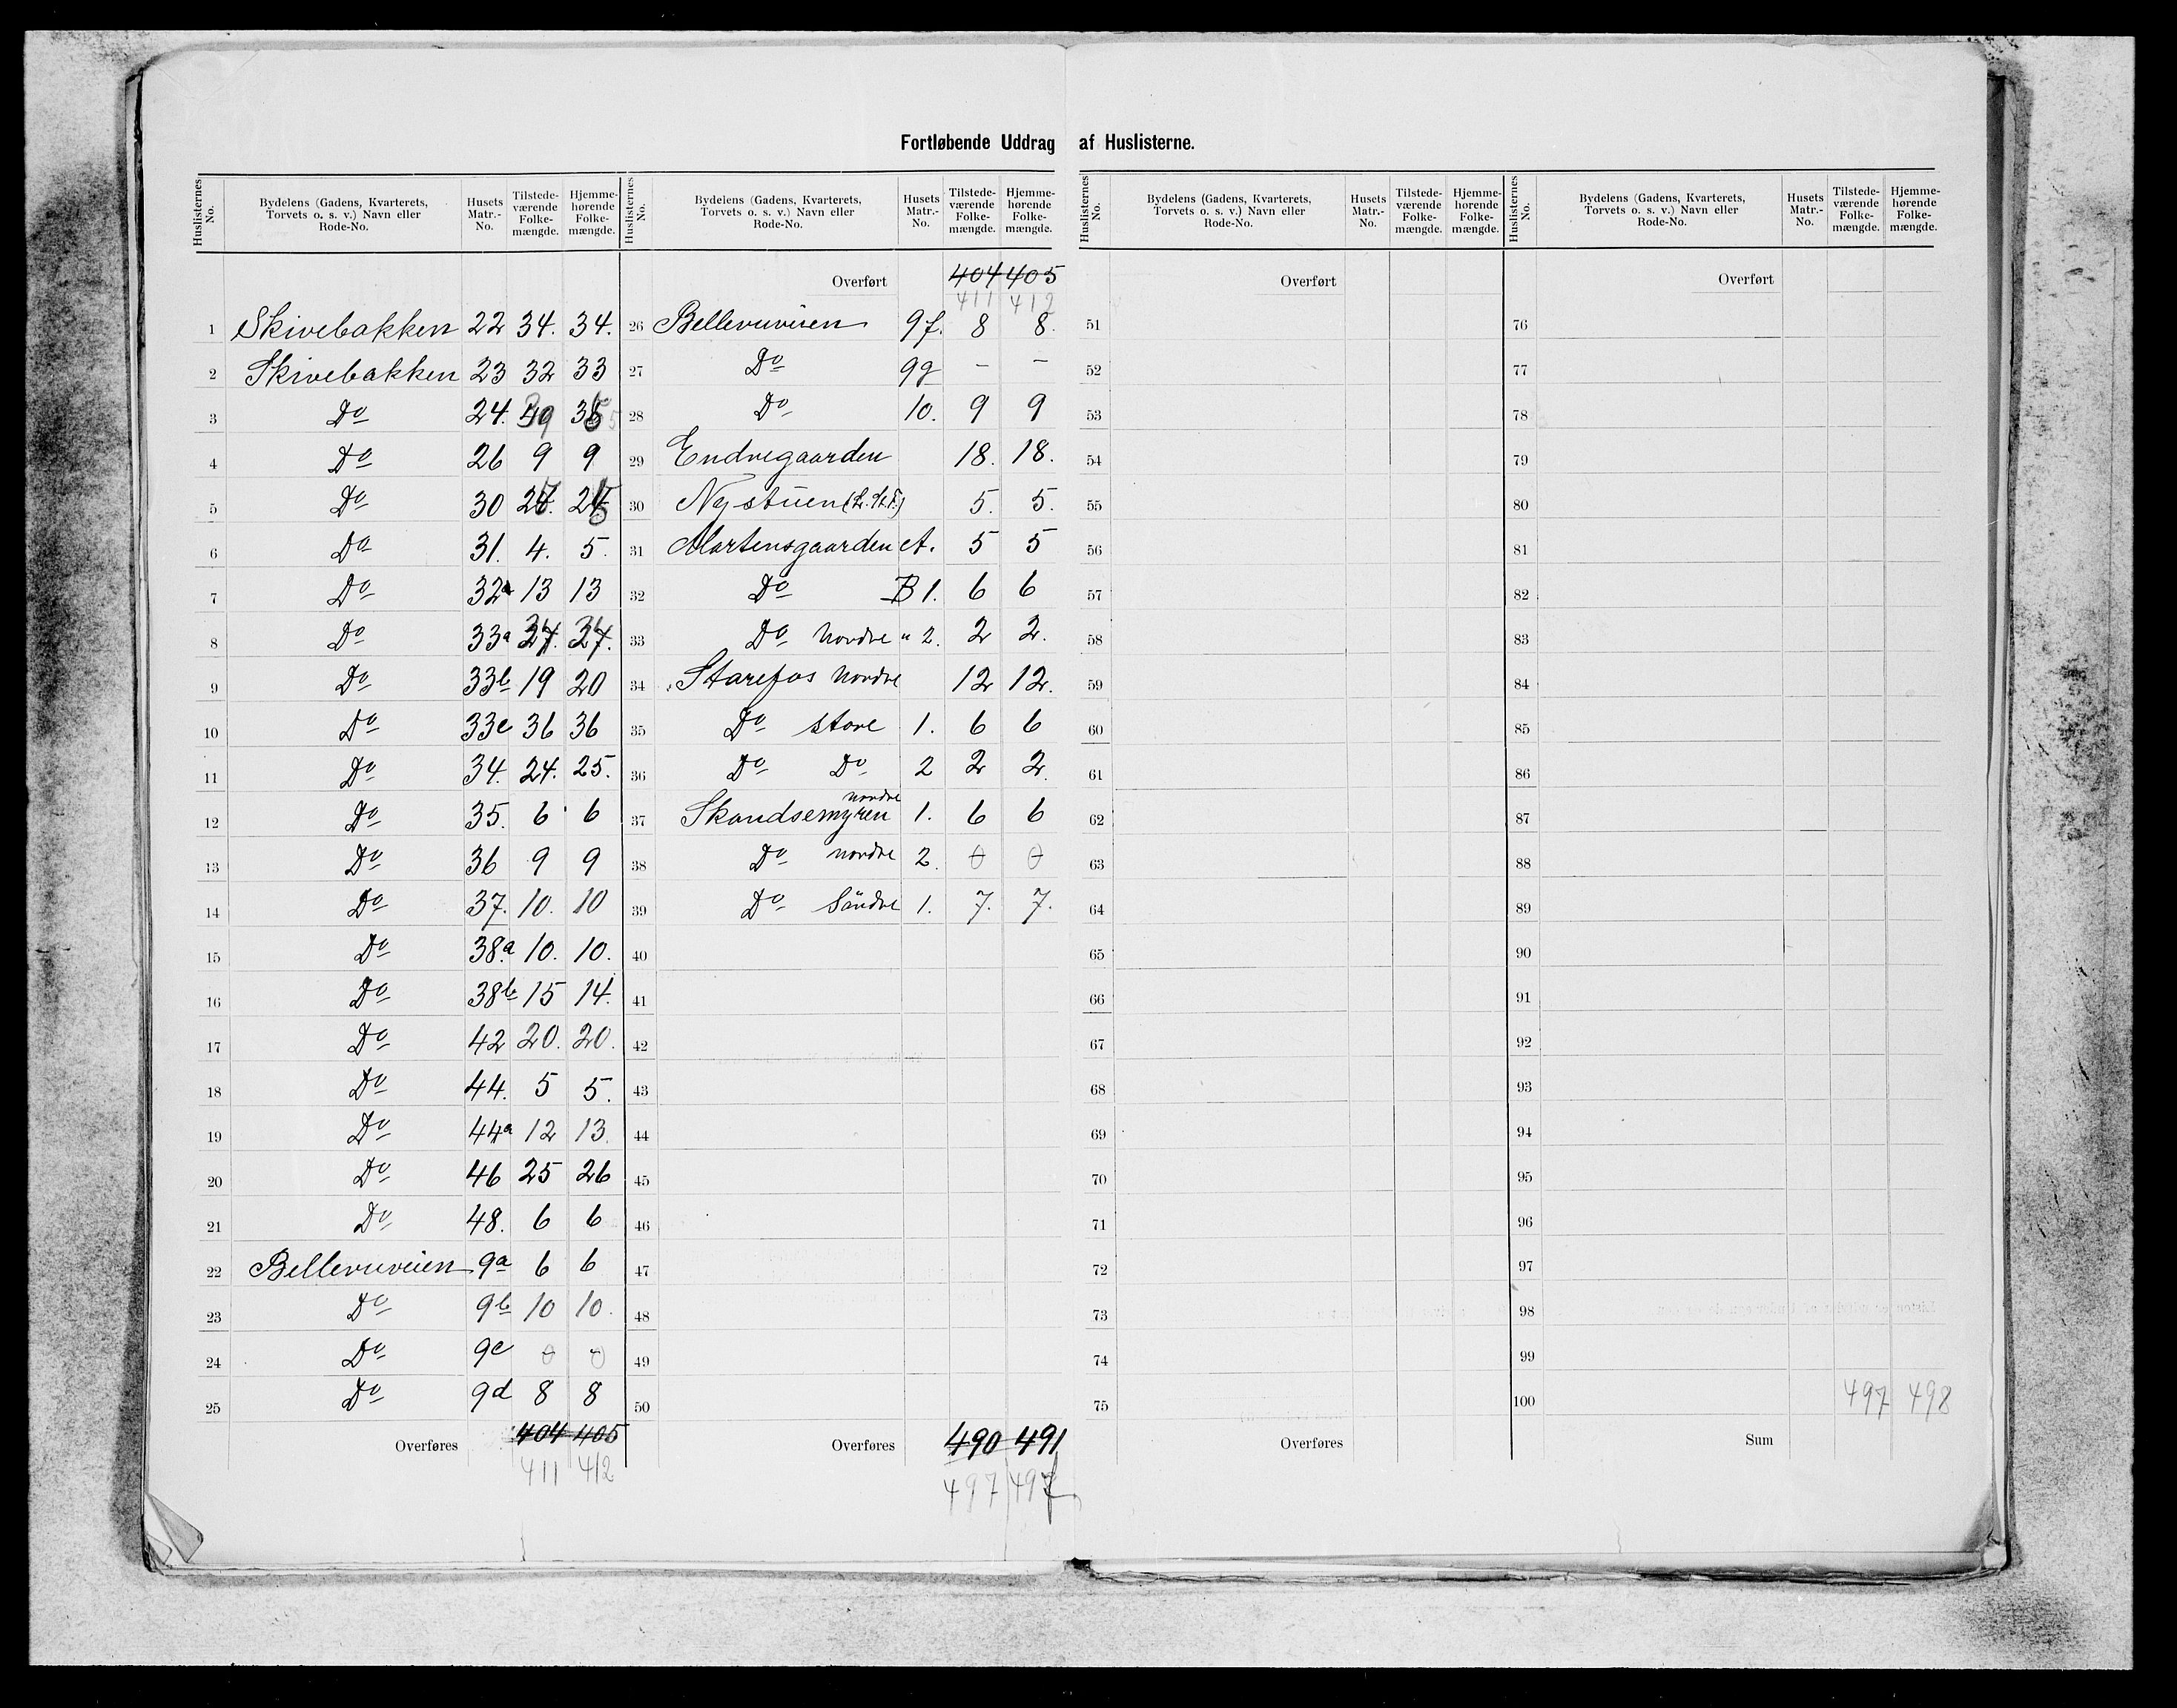 Fortløbende Uddrag af Huslisterne.
Huslisternes No. | Bydelens (Gadens, Kvarterets, Torvets o. s. v.) Navn eller Rode-No. | Husets Matr.-No. | Tilstedeværende Folkemængde. | Hjemmehørende Folkemængde.
1 Skivebakken 22 34. 34.
2 Skivebakken 23 32 33
3 Do 24. 39 35
4 Do 26 9 9
5 Do 30 25 25
6 Do 31. 4. 5.
7 Do 32a 13 13
8 Do 33a 34 34
9 Do 33b 19 20
10 Do 33c 36 36
11 Do 34. 24. 25.
12 Do 35. 6 6
13 Do 36 9 9
14 Do 37. 10. 10
15 Do 38.a 10. 10.
16 Do 38b 15 14.
17 Do 42 20. 20.
18 Do 44. 5 5.
19 Do 44a 12 13.
20 Do 46 25 26
21 Do 48. 6 6
22 Bellevuveien 9a 6 6
23 Do 9b 10 10.
24 Do 9c 0 0
25 Do 9d 8 8
Overføres 404 405
411 412
Huslisternes No. | Bydelens (Gadens, Kvarterets, Torvets o. s. v.) Navn eller Rode-No. | Husets Matr.-No. | Tilstedeværende Folkemængde. | Hjemmehørende Folkemængde.
Overført 404 405
411 412
26 Bellevuveien 9f. 8 8.
27 Do 9g - -
28 Do 10. 9 9
29 Endregaarden 18. 18.
30 Nystuen 5. 5.
31 Martensgaarden A. 5 5
32 Do B 1. 6 6
33 Do Nordre " 2. 2 2.
34 Starefos Nordre 12 12.
35 Do store 1. 6 6
36 Do Do 2 2 2.
37 Skandsemyren nordre 1. 6 6
38 Do nordre 2. 0 0
39 Do Söndre 1. 7. 7.
40
41
42
43
44
45
46
47
48
49
50
Overføres 490 491
497 497
Huslisternes No. | Bydelens (Gadens, Kvarterets, Torvets o. s. v.) Navn eller Rode-No. | Husets Matr.-No. | Tilstedeværende Folkemængde. | Hjemmehørende Folkemængde.
Overført
51
52
53
54
55
56
57
58
59
60
61
62
63
64
65
66
67
68
69
70
71
72
73
74
75
Overføres
Huslisternes No. | Bydelens (Gadens, Kvarterets, Torvets o. s. v.) Navn eller Rode-No. | Husets Matr.-No. | Tilstedeværende Folkemængde. | Hjemmehørende Folkemængde.
Overført
76
77
78
79
80
81
82
83
84
85
86
87
88
89
90
91
92
93
94
95
96
97
98
99
100 497 498
Sum